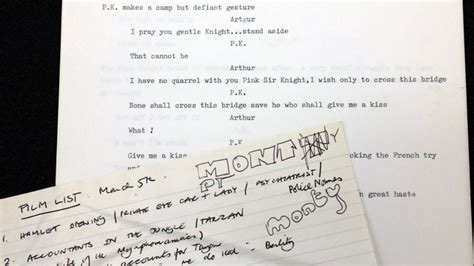 P.K. makes a camp but defiant gesture
Artgur
I pray you gentle Knight...stand aside
P.K.
That cannot be
Arthur
I have no quarrel with you Pink Sir Knight,I wish only to cross this bridge
P.K.
None shall cross this bridge save he who shall give me a kiss
Arthur
What !
P.K.
Give me a kiss
king the French try
great haste
MONTY
PY
monty
FILM LIST: March 5th
1. HAMLET OPENING / PRIVATE EYE CAR + LADY / PSYCHIATRIST /
Police Names
2. ACCOUNTANTS IN THE JUNGLE / TARZAN
accounts for Tarzan